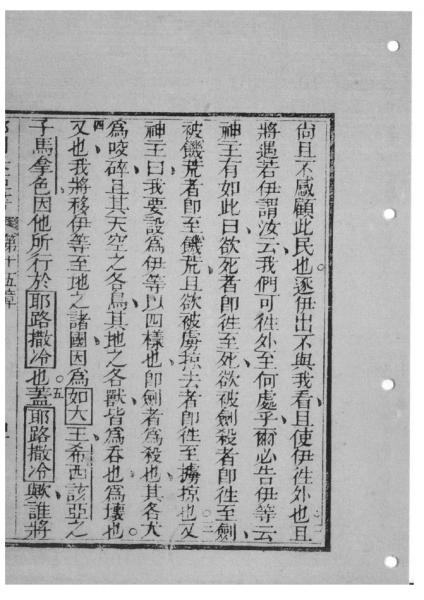 尙且不感顧此民也。逐伊出不與我看且使伊徃外也且
將遇若伊謂汝云我們可徃外至何處乎爾必告伊等云
神王有如此曰欲死者卽徃至死欲被劍殺者卽徃至劍
被饑荒者卽至饑荒且欲被虜掠去者卽徃至擄掠也三又
神王曰我要設爲伊等以四樣也卽劍者爲殺也其各犬
爲咬碎且其天空之各鳥其地之各獸皆爲吞也爲壞也。
四又也我將移伊等至地之諸國因爲如大王希西該亞之
子馬拿色因他所行於耶路撒冷也。五蓋耶路撒冷歟誰將
第十五章